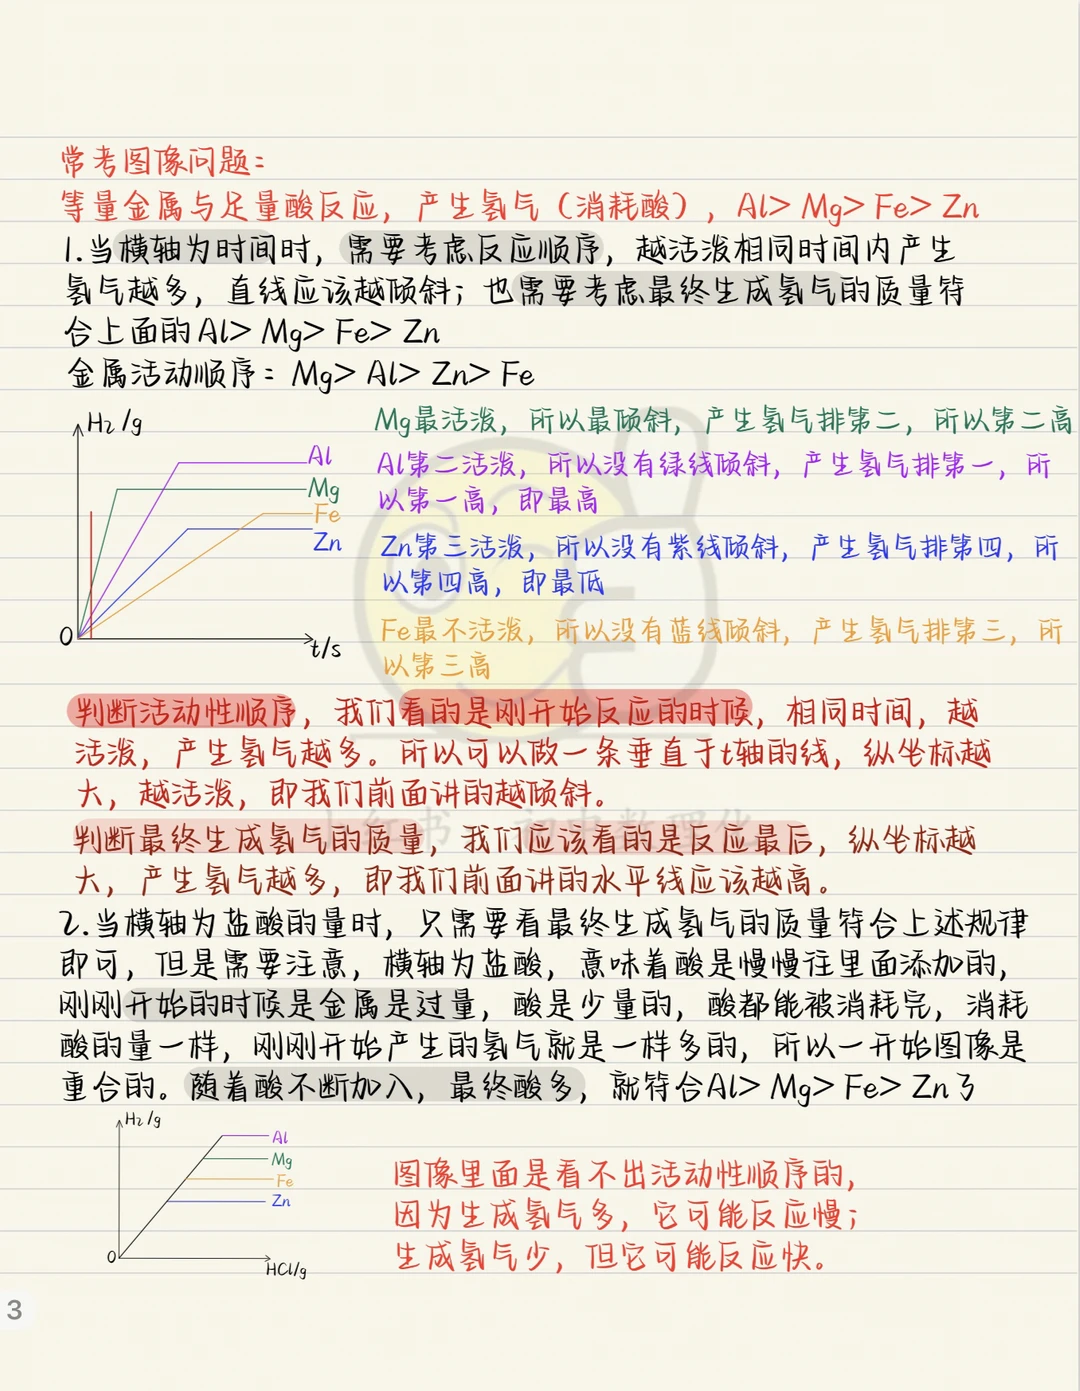 常考图像问题：
等量金属与足量酸反应，产生氢气（消耗酸），Al> Mg> Fe> Zn
1.当横轴为时间时，需要考虑反应顺序，越活泼相同时间内产生
氢气越多，直线应该越倾斜；也需要考虑最终生成氢气的质量符
合上面的Al> Mg> Fe> Zn
金属活动顺序：Mg> Al> Zn> Fe
H₂/g
Al
Mg
Fe
Zn
0
t/s
Mg最活泼，所以最倾斜，产生氢气排第二，所以第二高
Al第二活泼，所以没有绿线倾斜，产生氢气排第一，所
以第一高，即最高
Zn第三活泼，所以没有紫线倾斜，产生氢气排第四，所
以第四高，即最低
Fe最不活泼，所以没有蓝线倾斜，产生氢气排第三，所
以第三高
判断活动性顺序，我们看的是刚开始反应的时候，相同时间，越
活泼，产生氢气越多。所以可以做一条垂直于t轴的线，纵坐标越
大，越活泼，即我们前面讲的越倾斜。
小红书 初中数理化
判断最终生成氢气的质量，我们应该看的是反应最后，纵坐标越
大，产生氢气越多，即我们前面讲的水平线应该越高。
2.当横轴为盐酸的量时，只需要看最终生成氢气的质量符合上述规律
即可，但是需要注意，横轴为盐酸，意味着酸是慢慢往里面添加的，
刚刚开始的时候是金属是过量，酸是少量的，酸都能被消耗完，消耗
酸的量一样，刚刚开始产生的氢气就是一样多的，所以一开始图像是
重合的。随着酸不断加入，最终酸多，就符合Al> Mg> Fe> Zn了
H₂/g
Al
Mg
Fe
Zn
0
HCl/g
图像里面是看不出活动性顺序的，
因为生成氢气多，它可能反应慢；
生成氢气少，但它可能反应快。
3